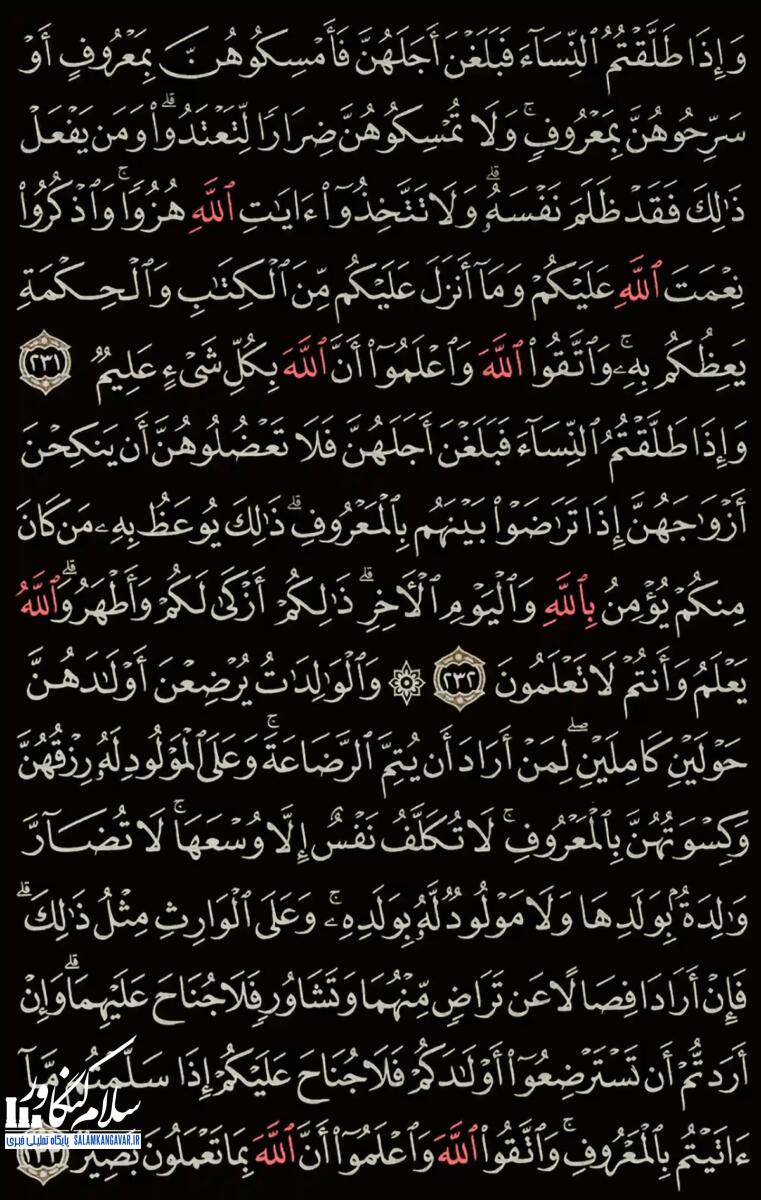 وَإِذَا طَلَّقۡتُمُ ٱلنِّسَآءَ فَبَلَغۡنَ أَجَلَهُنَّ فَأَمۡسِكُوهُنَّ بِمَعۡرُوفٍ أَوۡ
سَرِّحُوهُنَّ بِمَعۡرُوفٖۚ وَلَا تُمۡسِكُوهُنَّ ضِرَارٗا لِّتَعۡتَدُواْۚ وَمَن يَفۡعَلۡ
ذَٰلِكَ فَقَدۡ ظَلَمَ نَفۡسَهُۥۚ وَلَا تَتَّخِذُوٓاْ ءَايَٰتِ ٱللَّهِ هُزُوٗاۚ وَٱذۡكُرُواْ
نِعۡمَتَ ٱللَّهِ عَلَيۡكُمۡ وَمَآ أَنزَلَ عَلَيۡكُم مِّنَ ٱلۡكِتَٰبِ وَٱلۡحِكۡمَةِ
يَعِظُكُم بِهِۦۚ وَٱتَّقُواْ ٱللَّهَ وَٱعۡلَمُوٓاْ أَنَّ ٱللَّهَ بِكُلِّ شَيۡءٍ عَلِيمٞ ٢٣١
وَإِذَا طَلَّقۡتُمُ ٱلنِّسَآءَ فَبَلَغۡنَ أَجَلَهُنَّ فَلَا تَعۡضُلُوهُنَّ أَن يَنكِحۡنَ
أَزۡوَٰجَهُنَّ إِذَا تَرَٰضَوۡاْ بَيۡنَهُم بِٱلۡمَعۡرُوفِۗ ذَٰلِكَ يُوعَظُ بِهِۦ مَن كَانَ
مِنكُمۡ يُؤۡمِنُ بِٱللَّهِ وَٱلۡيَوۡمِ ٱلۡأٓخِرِۗ ذَٰلِكُمۡ أَزۡكَىٰ لَكُمۡ وَأَطۡهَرُۚ وَٱللَّهُ
يَعۡلَمُ وَأَنتُمۡ لَا تَعۡلَمُونَ ٢٣٢ ۞ وَٱلۡوَٰلِدَٰتُ يُرۡضِعۡنَ أَوۡلَٰدَهُنَّ
حَوۡلَيۡنِ كَامِلَيۡنِۖ لِمَنۡ أَرَادَ أَن يُتِمَّ ٱلرَّضَاعَةَۚ وَعَلَى ٱلۡمَوۡلُودِ لَهُۥ رِزۡقُهُنَّ
وَكِسۡوَتُهُنَّ بِٱلۡمَعۡرُوفِۚ لَا تُكَلَّفُ نَفۡسٌ إِلَّا وُسۡعَهَاۚ لَا تُضَآرَّ
وَٰلِدَةُۢ بِوَلَدِهَا وَلَا مَوۡلُودٞ لَّهُۥ بِوَلَدِهِۦۚ وَعَلَى ٱلۡوَارِثِ مِثۡلُ ذَٰلِكَۗ
فَإِنۡ أَرَادَا فِصَالًا عَن تَرَاضٖ مِّنۡهُمَا وَتَشَاوُرٖ فَلَا جُنَاحَ عَلَيۡهِمَاۗ وَإِنۡ
أَرَدتُّمۡ أَن تَسۡتَرۡضِعُوٓاْ أَوۡلَٰدَكُمۡ فَلَا جُنَاحَ عَلَيۡكُمۡ إِذَا سَلَّمۡتُم مَّآ
ءَاتَيۡتُم بِٱلۡمَعۡرُوفِۗ وَٱتَّقُواْ ٱللَّهَ وَٱعۡلَمُوٓاْ أَنَّ ٱللَّهَ بِمَا تَعۡمَلُونَ بَصِيرٞ ٢٣٣
سلام کنگاور
پایگاه تحلیلی خبری SALAMKANGAVAR.IR